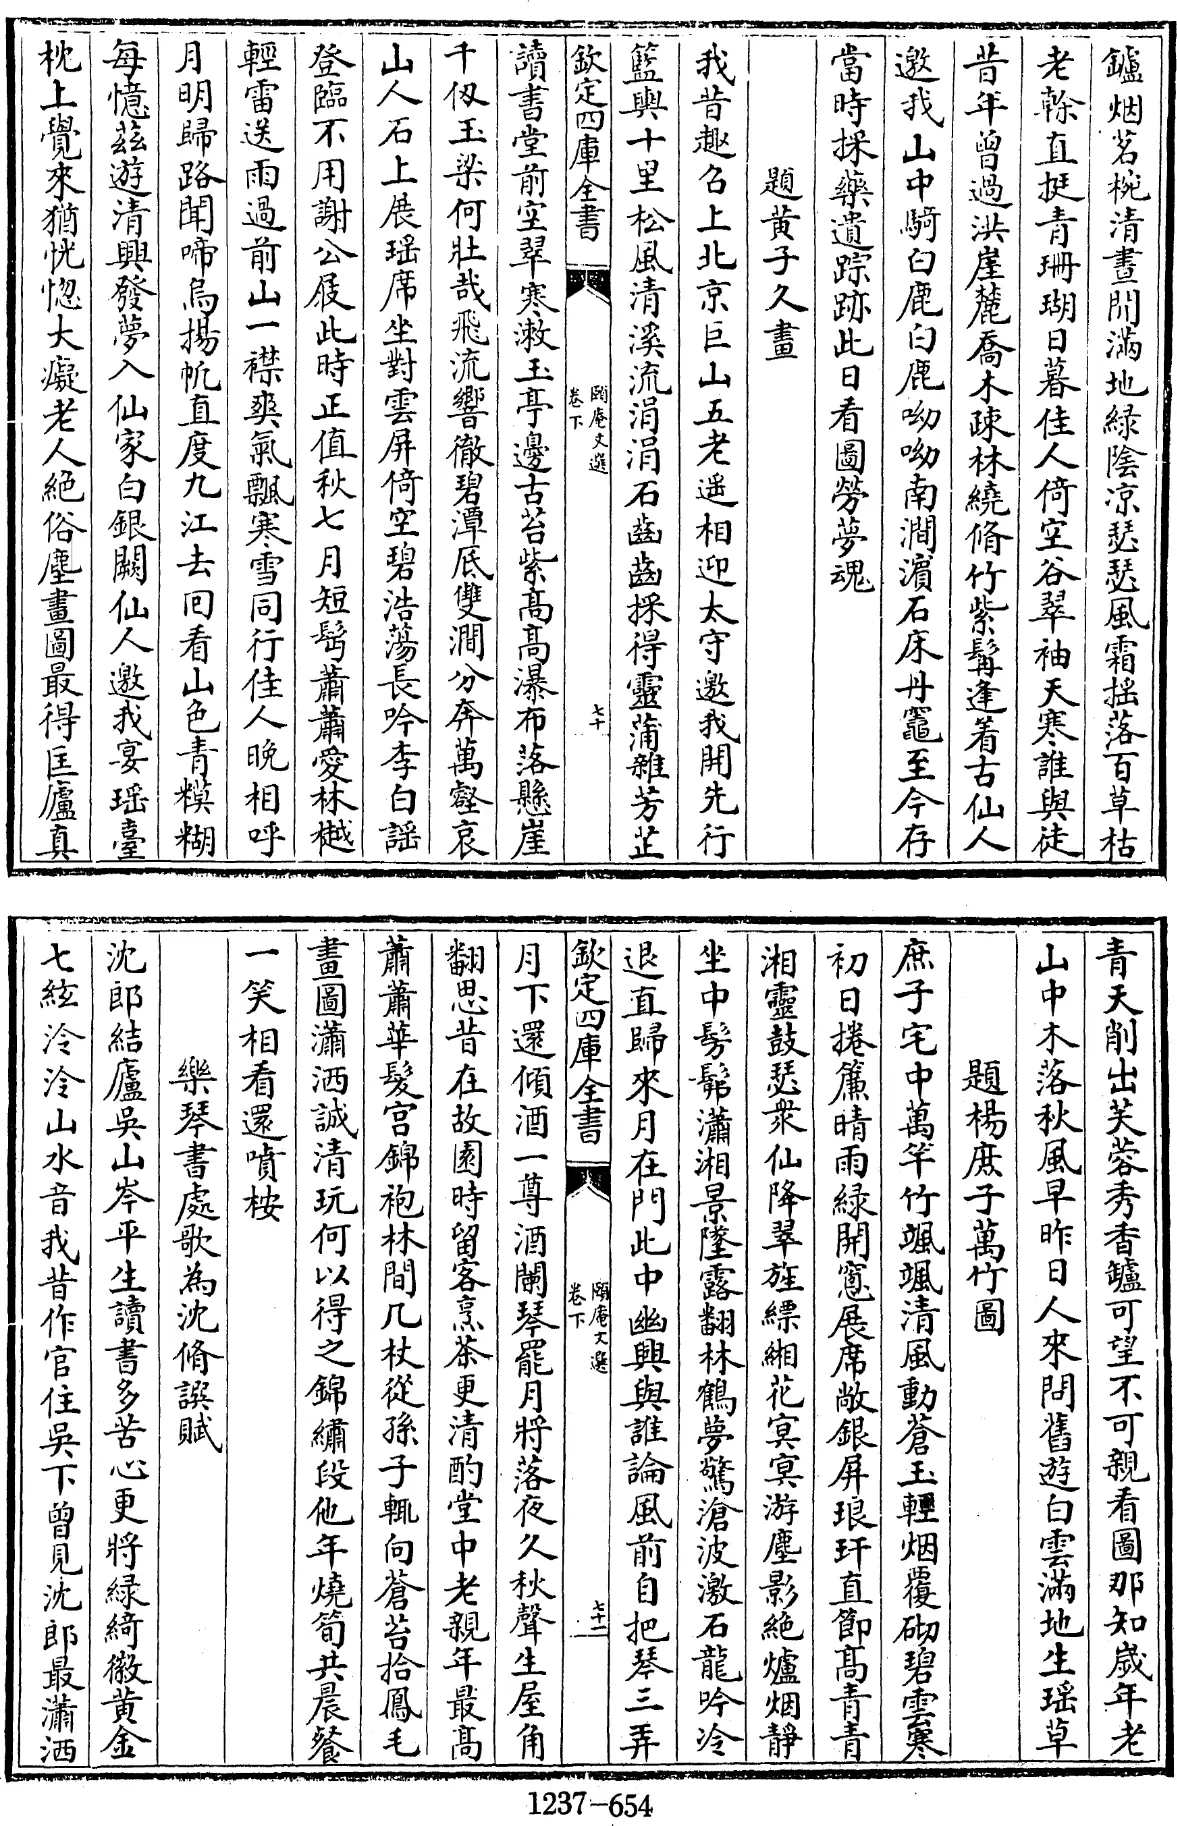 鑪烟茗椀清晝閒滿地緑陰凉瑟瑟風霜揺落百草枯
老榦直挺青珊瑚日暮佳人倚空谷翠袖天寒誰與徒
昔年曾過洪崖麓喬木疎林繞脩竹紫髯逢着古仙人
邀我山中騎白鹿白鹿呦呦南澗濵石床丹竈至今存
當時採藥遺踪跡此日看圖勞夢魂
題黄子久畫
我昔趣召上北京巨山五老遥相迎太守邀我開先行
籃輿十里松風清溪流涓涓石齒齒採得靈蒲雜芳芷
欽定四庫全書
頤庵文選
卷下
七十
讀書堂前空翠寒漱玉亭邊古苔紫髙髙瀑布落懸崖
千仭玉梁何壯哉飛流響徹碧潭底雙澗分奔萬壑哀
山人石上展瑶席坐對雲屏倚空碧浩蕩長吟李白謡
登臨不用謝公屐此時正值秋七月短髩蕭蕭愛林樾
輕雷送雨過前山一襟爽氣飄寒雪同行佳人晩相呼
月明歸路聞啼烏揚帆直度九江去回看山色青糢糊
每憶茲遊清興發夢入仙家白銀闕仙人邀我宴瑶臺
枕上覺來猶恍惚大癡老人絕俗塵畫圖最得匡廬真
青天削出芙蓉秀香鑪可望不可親看圖那知嵗年老
山中木落秋風早昨日人來問舊遊白雲滿地生瑶草
題楊庶子萬竹圖
庶子宅中萬竿竹颯颯清風動蒼玉輕烟覆砌碧雲寒
初日捲簾晴雨緑開窓展席敞銀屏琅玕直節髙青青
湘靈鼓瑟衆仙降翠旌縹緗花冥冥游塵影絶爐烟靜
坐中髣髴瀟湘景墜露翻林鶴夢驚滄波激石龍吟冷
退直歸來月在門此中幽興與誰論風前自把琴三弄
欽定四庫全書
頤庵文選
卷下
七十一
月下還傾酒一尊酒闌琴罷月將落夜久秋聲生屋角
翻思昔在故園時留客烹茶更清酌堂中老親年最髙
蕭蕭華髪宫錦袍林間几杖從孫子輒向蒼苔拾鳳毛
畫圖瀟洒誠清玩何以得之錦繡段他年燒筍共晨餐
一笑相看還噴桉
樂琴書處歌為沈脩譔賦
沈郎結廬吳山岑平生讀書多苦心更將緑綺徽黄金
七絃泠泠山水音我昔作官住吳下曾見沈郎最瀟洒
1237-654